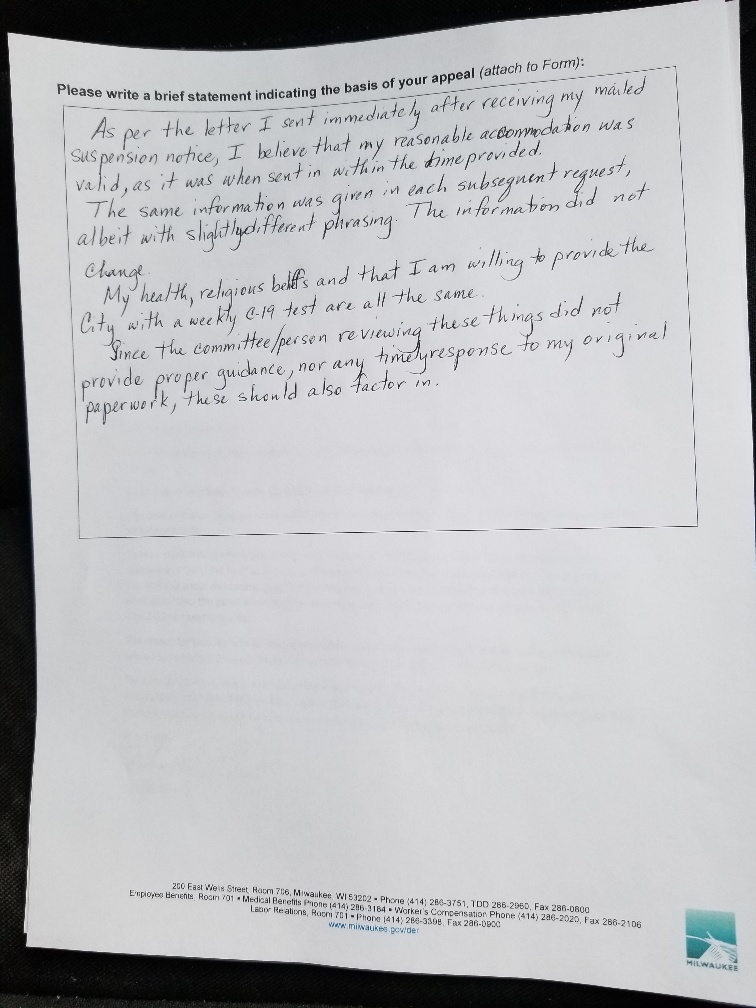 Please write a brief statement indicating the basis of your appeal (attach to Form):
As per the letter I sent immediately after receiving my mailed
suspension notice, I believe that my reasonable accommodation was
valid, as it was when sent in within the time provided.
The same information was given in each subsequent request,
albeit with slightly different phrasing. The information did not
change.
My health, religious beliefs and that I am willing to provide the
City with a weekly C-19 test are all the same.
Since the committee/person reviewing these things did not
provide proper guidance, nor any timely response to my original
paperwork, these should also factor in.
200 East Wells Street, Room 706, Milwaukee, WI 53202 • Phone (414) 286-3751, TDD 286-2960, Fax 286-0800
Employee Benefits, Room 701 • Medical Benefits Phone (414) 286-3184 • Worker's Compensation Phone (414) 286-2020, Fax 286-2106
Labor Relations, Room 701 • Phone (414) 286-3398, Fax 286-0900
www.milwaukee.gov/der
MILWAUKEE